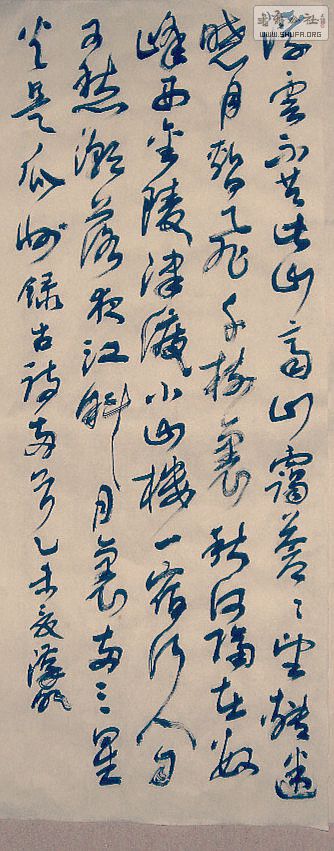 浮雲不共此山齊山靄蒼々望轉迷
曉月暫飛千樹裏秋河隔在數
峰西金陵津渡小山樓一宿行人自
可愁潮落夜江斜月裏兩三星
火是瓜州錄古詩兩首乙未夏
WWW.SHUFA.ORG